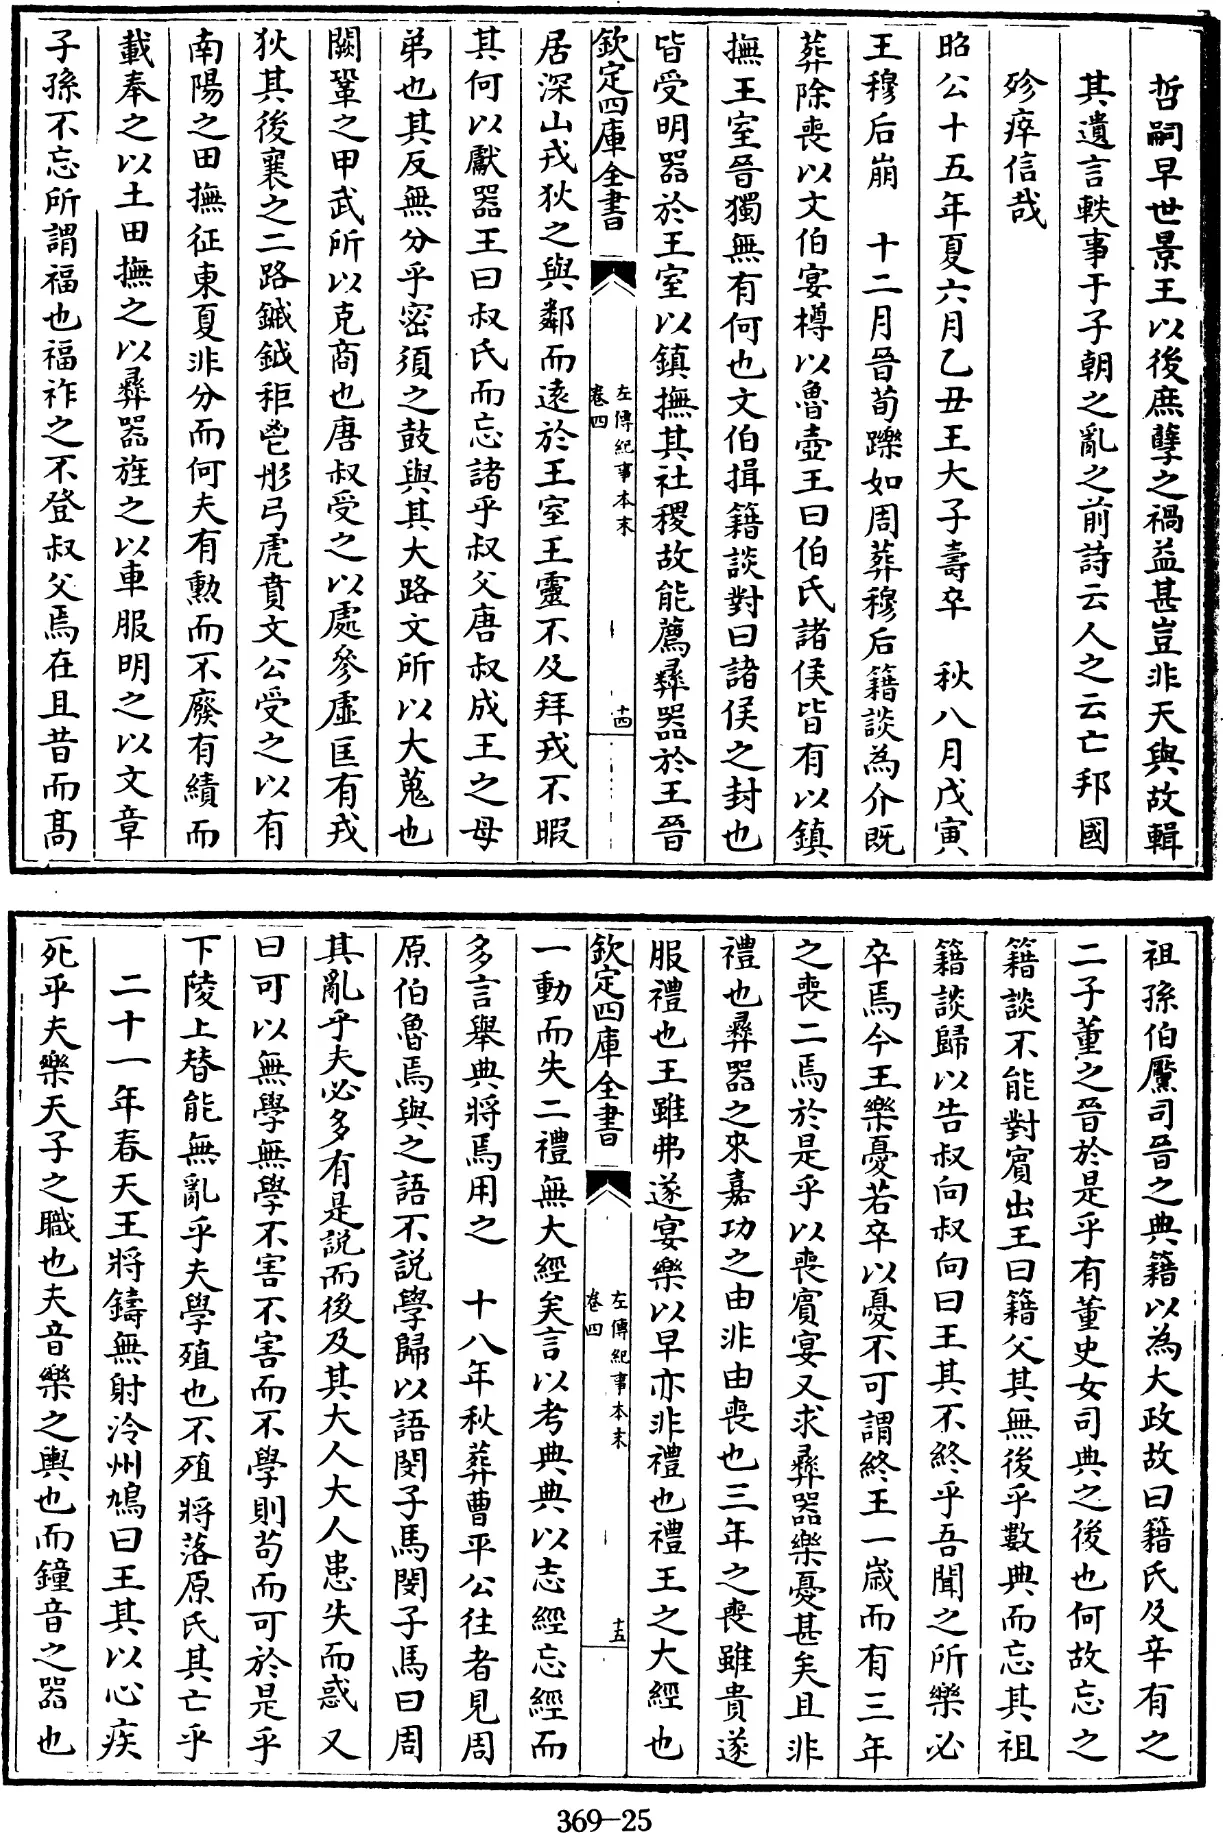 哲嗣早世景王以後庶孽之禍益甚豈非天與故輯
其遺言軼事于子朝之亂之前詩云人之云亡邦國
殄瘁信哉
昭公十五年夏六月乙丑王大子壽卒　秋八月戊寅
王穆后崩　十二月晉荀躒如周葬穆后籍談為介既
葬除喪以文伯宴樽以魯壺王曰伯氏諸侯皆有以鎮
撫王室晉獨無有何也文伯揖籍談對曰諸侯之封也
皆受明器於王室以鎮撫其社稷故能薦彝器於王晉
欽定四庫全書
左傳紀事本末
卷四
十四
居深山戎狄之與鄰而遠於王室王靈不及拜戎不暇
其何以獻器王曰叔氏而忘諸乎叔父唐叔成王之母
弟也其反無分乎密須之鼓與其大路文所以大蒐也
闕鞏之甲武所以克商也唐叔受之以處參虛匡有戎
狄其後襄之二路鏚鉞秬鬯彤弓虎賁文公受之以有
南陽之田撫征東夏非分而何夫有勲而不廢有績而
載奉之以土田撫之以彝器旌之以車服明之以文章
子孫不忘所謂福也福祚之不登叔父焉在且昔而高
祖孫伯黶司晉之典籍以為大政故曰籍氏及辛有之
二子董之晉於是乎有董史女司典之後也何故忘之
籍談不能對賓出王曰籍父其無後乎數典而忘其祖
籍談歸以告叔向叔向曰王其不終乎吾聞之所樂必
卒焉今王樂憂若卒以憂不可謂終王一歲而有三年
之喪二焉於是乎以喪賓宴又求彝器樂憂甚矣且非
禮也彝器之來嘉功之由非由喪也三年之喪雖貴遂
服禮也王雖弗遂宴樂以早亦非禮也禮王之大經也
欽定四庫全書
左傳紀事本末
卷四
十五
一動而失二禮無大經矣言以考典典以志經忘經而
多言舉典將焉用之　十八年秋葬曹平公往者見周
原伯魯焉與之語不説學歸以語閔子馬閔子馬曰周
其亂乎夫必多有是説而後及其大人大人患失而惑又
曰可以無學無學不害不害而不學則苟而可於是乎
下陵上替能無亂乎夫學殖也不殖將落原氏其亡乎
二十一年春天王將鑄無射泠州鳩曰王其以心疾
死乎夫樂天子之職也夫音樂之輿也而鐘音之器也
369-25